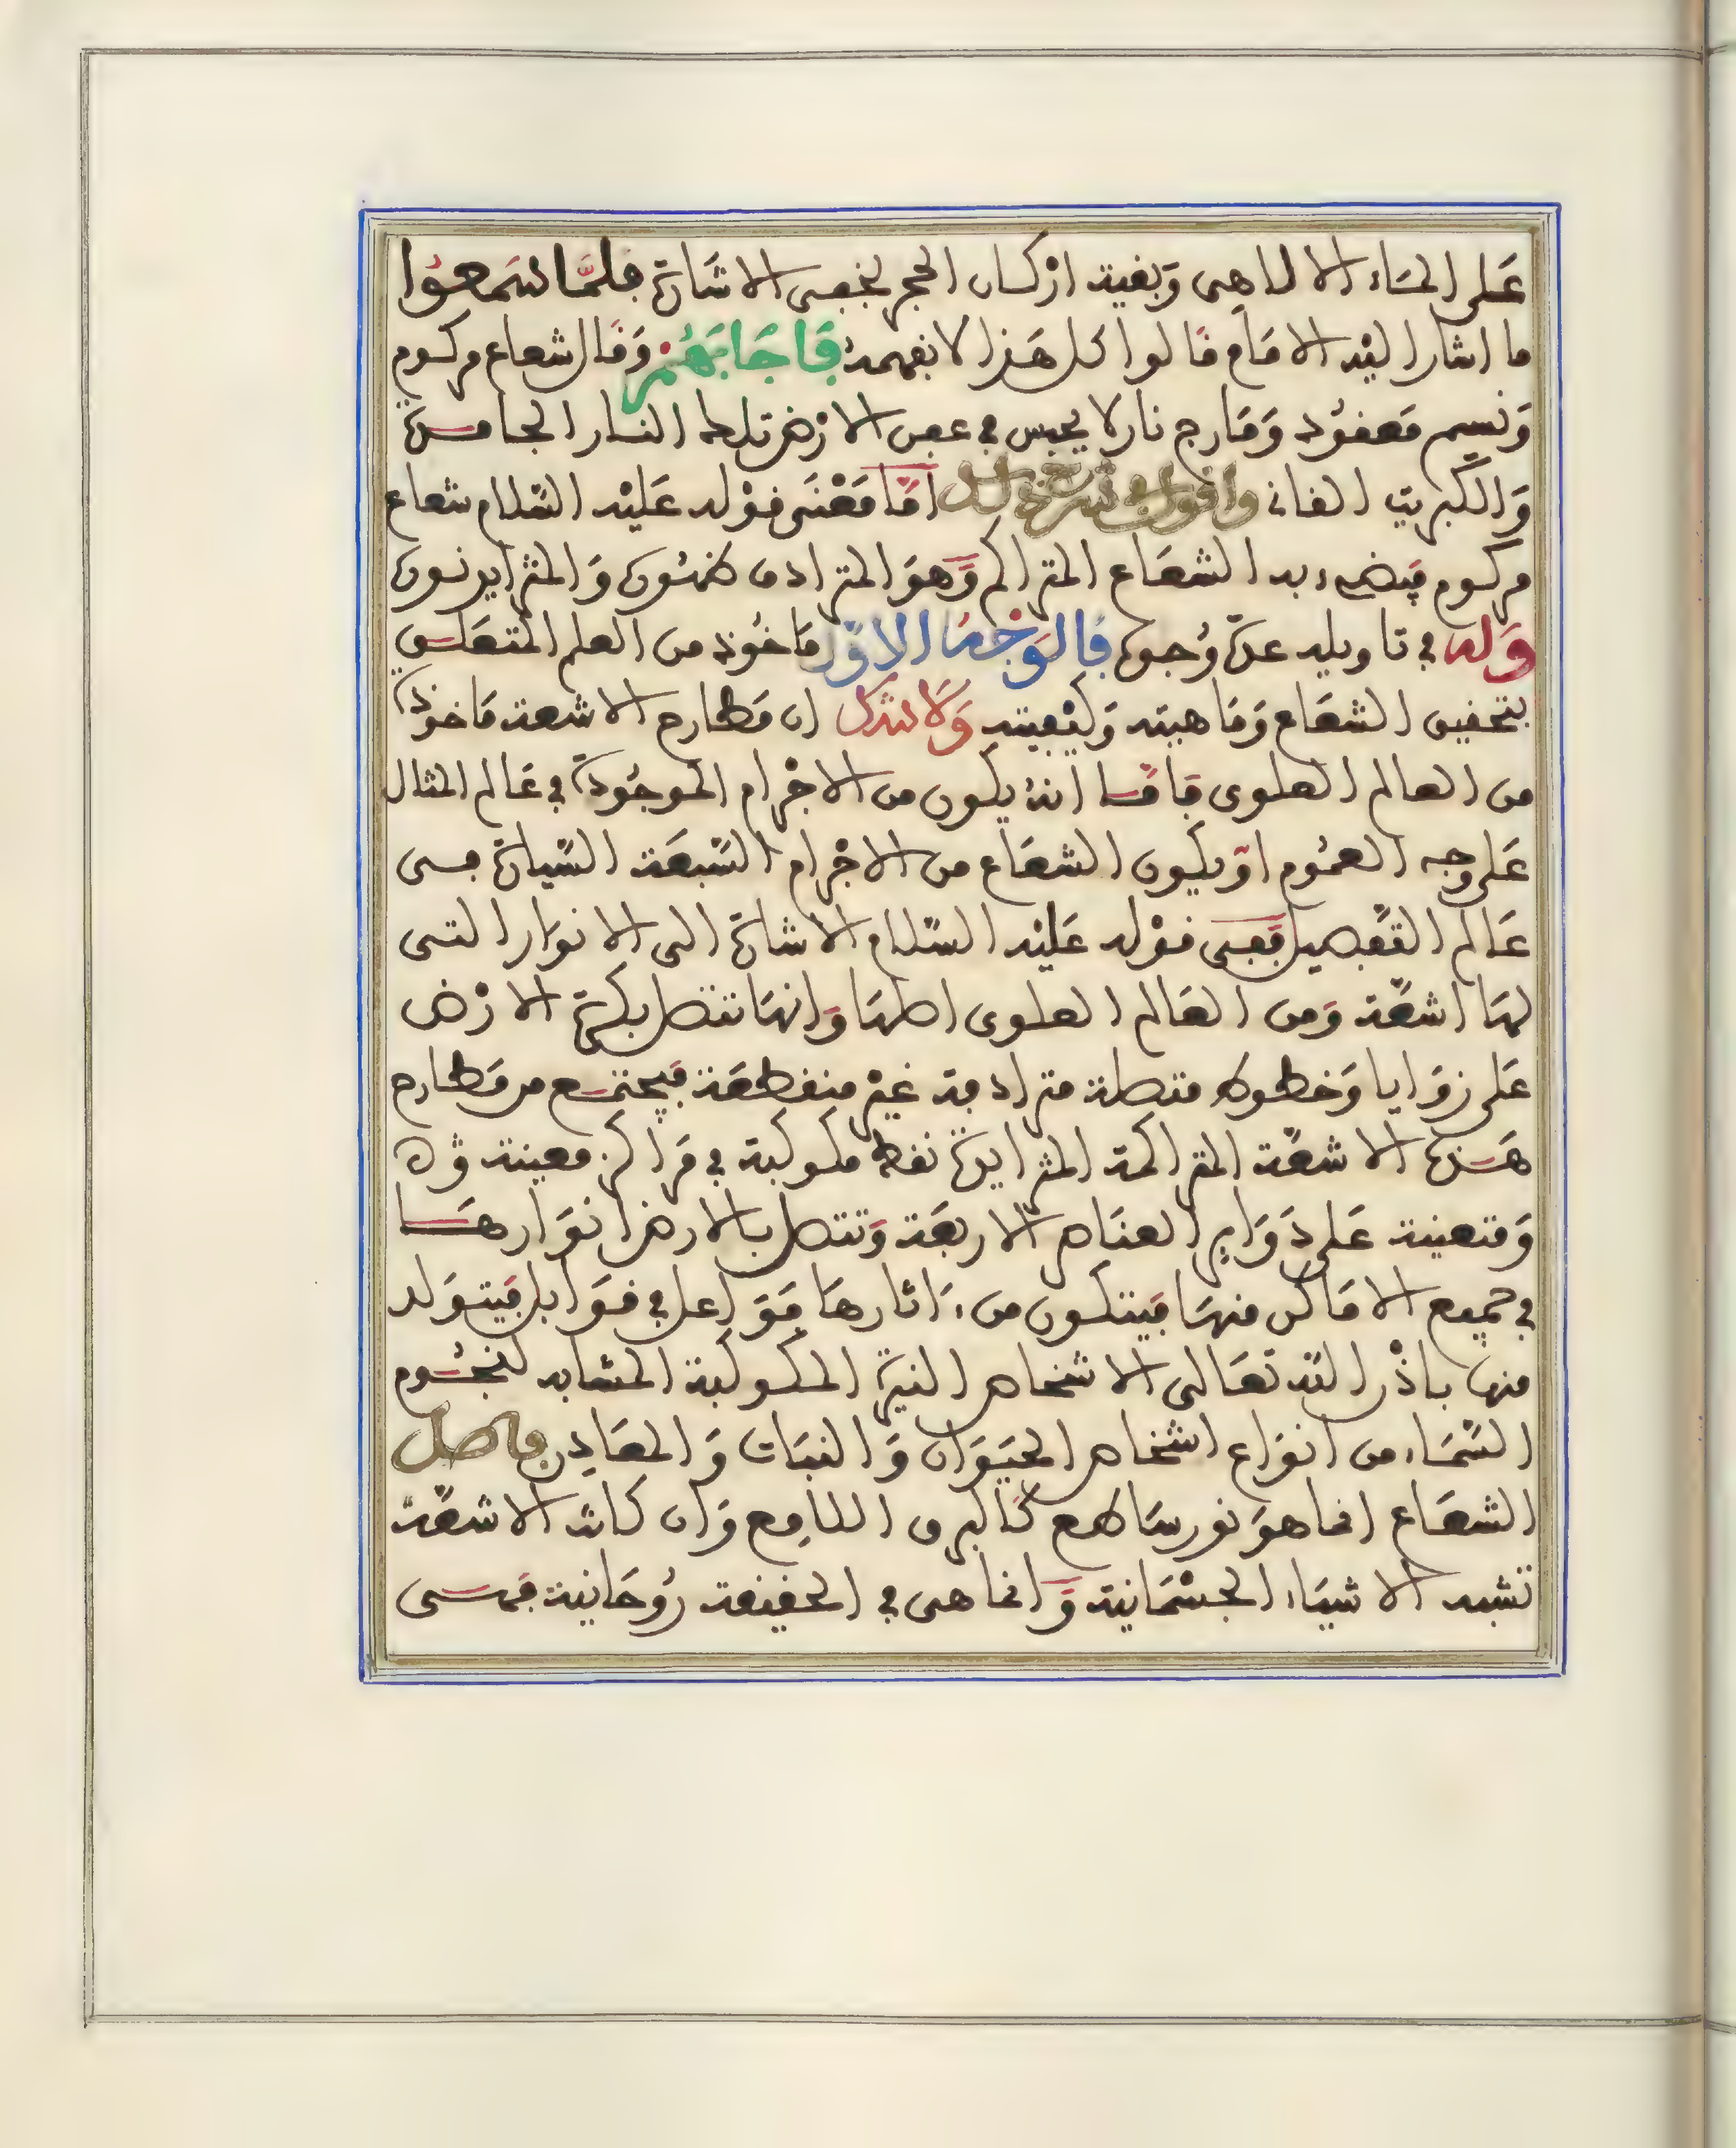 على الماء الالاهى وبقية اركان الحجر لخفى الاشارة فلما سمعوا
ما اشار اليه الامام قالوا كل هذا لا نفهمه فاجابهم وقال شعاع مركوم
ونسيم معقود ومارج نار لا يحبس في عمق الارض تلك النار الجامدة
والكبريت القانى واقول في شرح ذلك اما معنى قوله عليه السلام شعاع
مركوم فيضىء به الشعاع المتراكم وهو المترادف ضوءه والمتزايد نوره
وله في تاويله عدة وجوه فالوجه الاول ماخوذ من العلم المتعلق
بتحقيق الشعاع وماهيته وكيفيته ولا شك ان مطارح الاشعة ماخوذة
من العالم العلوى فاما انه يكون من الاجرام الموجودة في عالم المثال
على وجه العموم او يكون الشعاع من الاجرام السبعة السيارة فى
عالم التفصيل ففى قوله عليه السلام الاشارة الى الانوار التى
لها اشعة ومن العالم العلوى اصلها وانها تتصل بكرة الارض
على زوايا وخطوط متصلة مترادفة غير منقطعة فيجتمع من مطارح
هذه الاشعة المتراكمة المتزايدة نقط مكوكبة في مراكز معينة
ومتعينة على دواير العناصر الاربعة وتتصل بالارض انوارها
في جميع الاماكن منها فيتكون من ءاثارها فواعل في قوابل فيتولد
منها باذن الله تعالى الاشخاص النيرة المكوكبة المشابه لنجوم
السماء من انواع اشخاص الحيوان والنبات والمعادن فاصل
الشعاع انما هو نور ساطع كالبرق اللامع وان كانت الاشعة
تشبه الاشياء الجسمانية وانما هى في الحقيقة روحانية فمتى